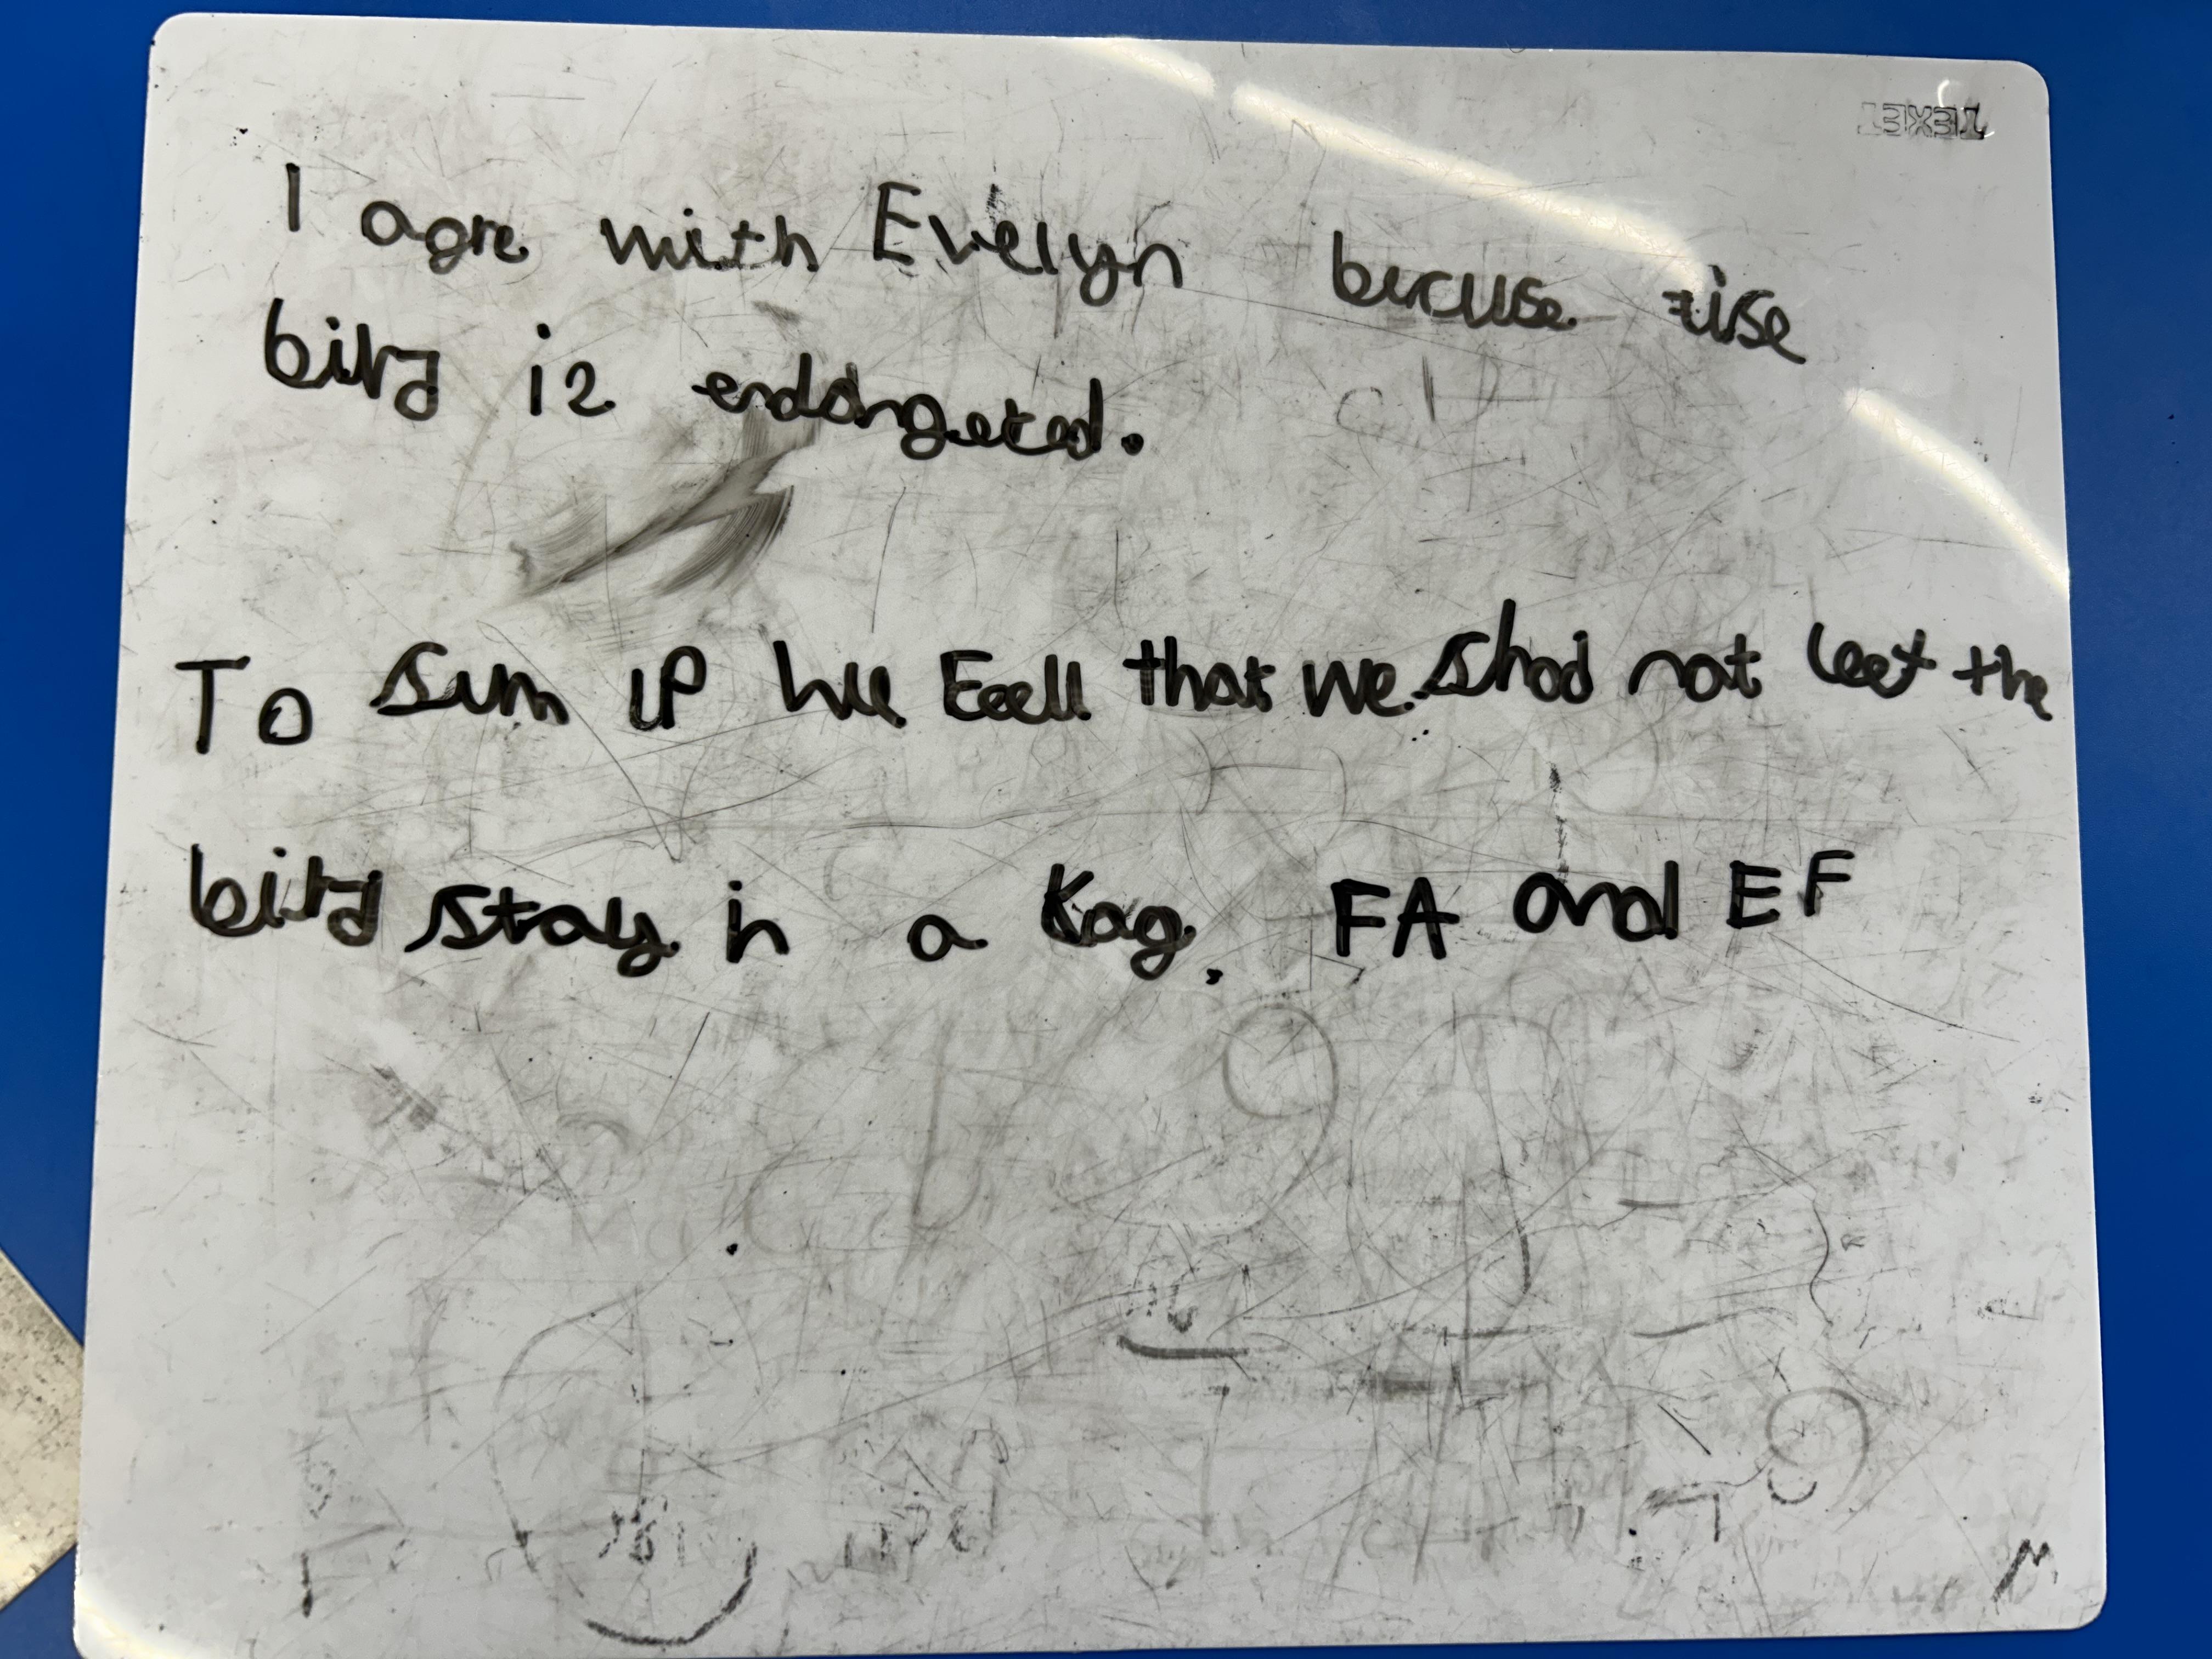 I agre with Evelyn becuse tise
bird is endangered.
To sum up we Feell that we shod not leet the
bird stay in a Kag. FA and EF